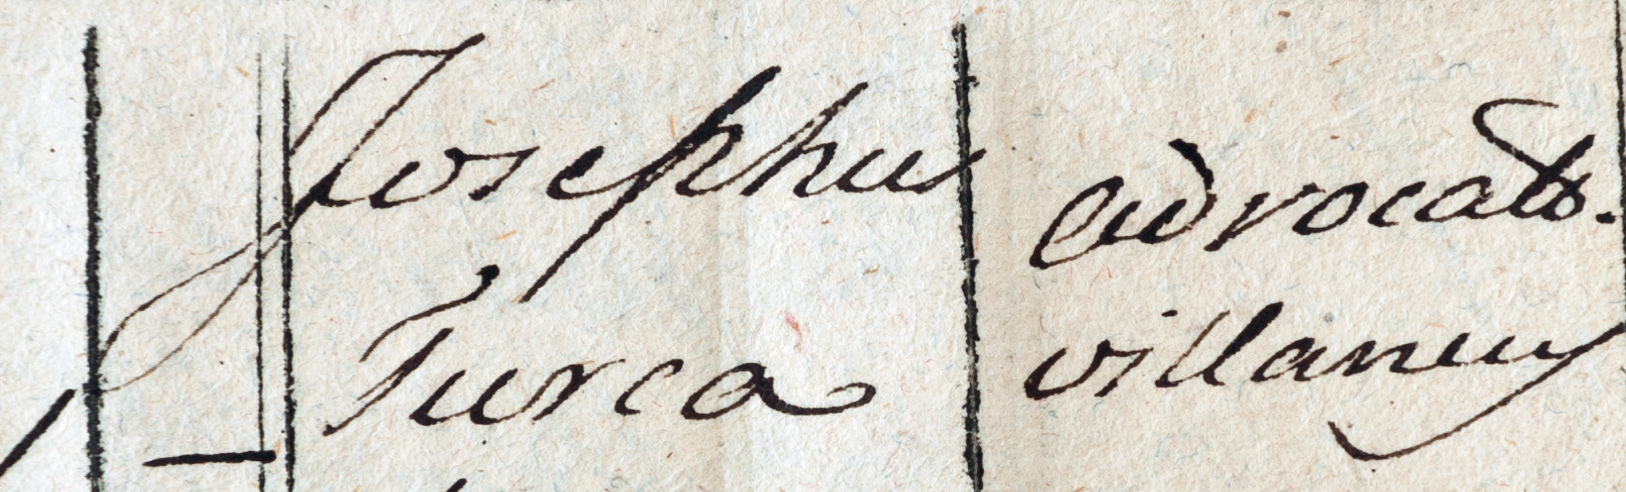 Josephus
Turca
advocatus.
villanus